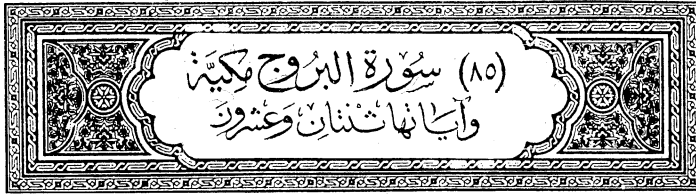 (٨٥) سُورَة البُرُوج مَكِيَّة
وَآيَاتهَا ثنتَانِ وَعشرُونَ